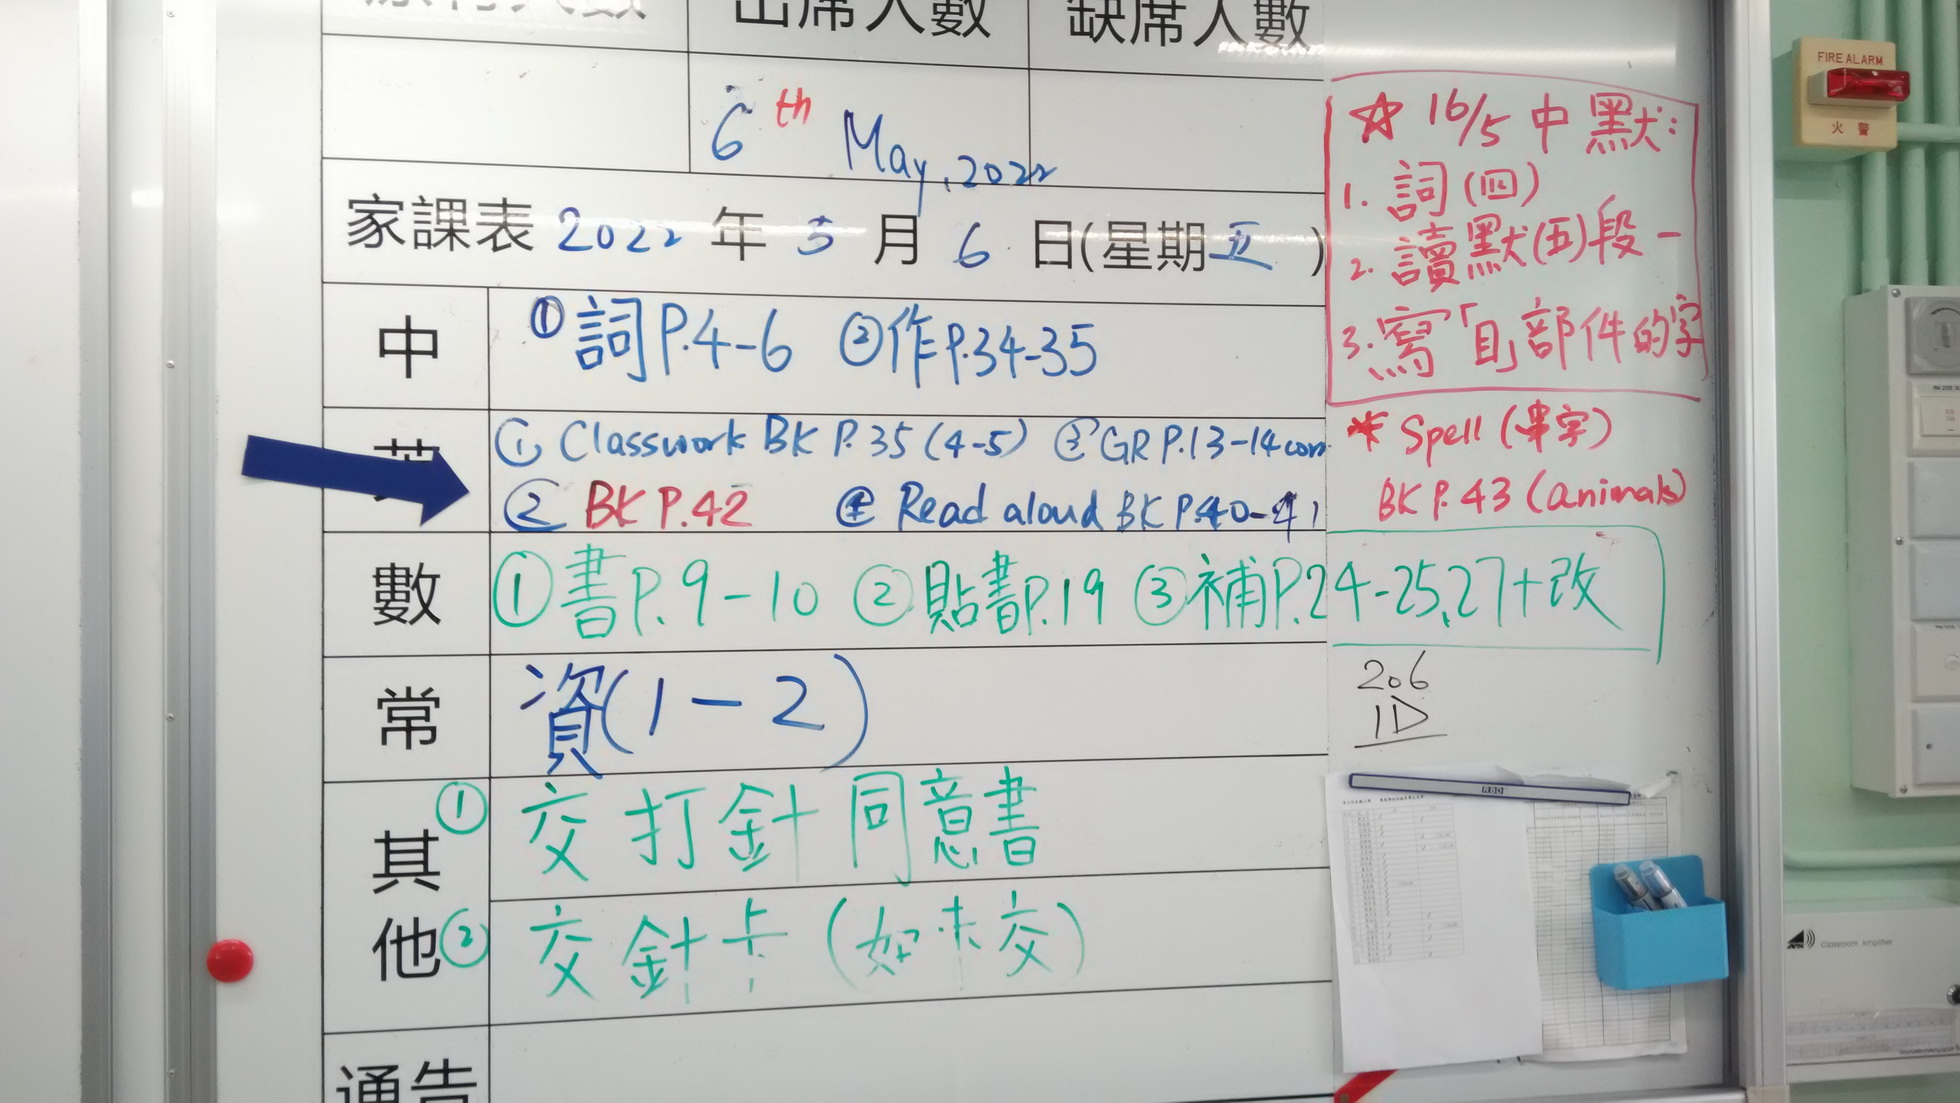 出席人數 缺席人數
6th May, 2022
家課表 2022 年 5 月 6 日(星期五)
中 ①詞P.4-6 ②作P.34-35
① Classwork BK P.35 (4-5) ③ GR P.13-14 corr
② BK P.42 ④ Read aloud BK P.40-41
數 ①書P.9-10 ②貼書P.19 ③補P.24-25,27+改
常 資(1-2)
其他
① 交打針同意書
② 交針卡(如未交)
通告
☆ 16/5 中默:
1. 詞(四)
2. 讀默(五)段一
3. 寫「自」部件的字
* Spell (串字)
BK P.43 (animals)
206
1D
RBD
FIRE ALARM
火警
Classroom Amplifier